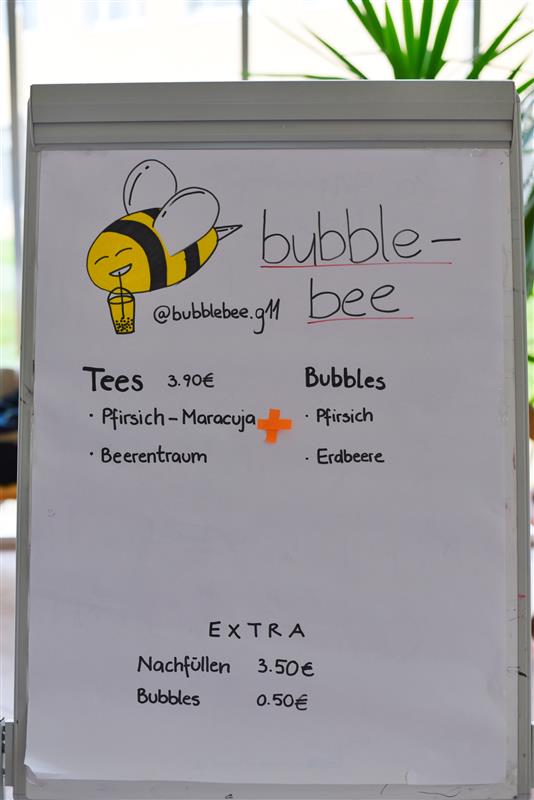 bubble-
bee
@bubblebee.g11
Tees 3.90€
· Pfirsich-Maracuja
· Beerentraum
+
Bubbles
· Pfirsich
· Erdbeere
EXTRA
Nachfüllen 3.50€
Bubbles 0.50€